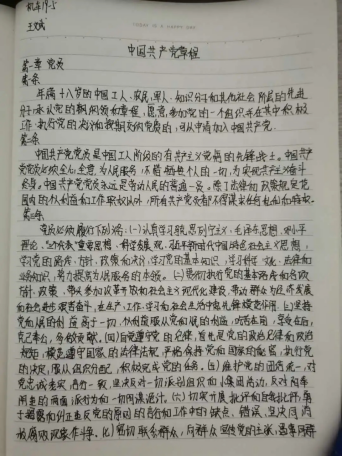 机车19-5
王斌
中国共产党章程
第一章 党员
第一条
年满十八岁的中国工人、农民、军人、知识分子和其他社会阶层的先进
分子,承认党的纲领和章程,愿意参加党的一个组织并在其中积极
工作、执行党的决议和按期交纳党费的,可以申请加入中国共产党。
第二条
中国共产党党员是中国工人阶级的有共产主义觉悟的先锋战士。中国共产
党党员必须全心全意为人民服务,不惜牺牲个人的一切,为实现共产主义奋斗
终身。中国共产党党员永远是劳动人民的普通一员。除了法律和政策规定范
围内的个人利益和工作职权以外,所有共产党员都不得谋求任何私利和特权。
第三条
党员必须履行下列义务:(一)认真学习马克思列宁主义、毛泽东思想、邓小平
理论、“三个代表”重要思想、科学发展观、习近平新时代中国特色社会主义思想,
学习党的路线、方针、政策和决议,学习党的基本知识,学习科学、文化、法律和
业务知识,努力提高为人民服务的本领。(二)贯彻执行党的基本路线和各项
方针、政策,带头参加改革开放和社会主义现代化建设,带动群众为经济发展
和社会进步艰苦奋斗,在生产、工作、学习和社会生活中起先锋模范作用。(三)坚持
党和人民的利益高于一切,个人利益服从党和人民的利益,吃苦在前,享受在后,
克己奉公,多做贡献。(四)自觉遵守党的纪律,首先是党的政治纪律和政治
规矩,模范遵守国家的法律法规,严格保守党和国家的秘密,执行党
的决定,服从组织分配,积极完成党的任务。(五)维护党的团结和统一,对
党忠诚老实,言行一致,坚决反对一切派别组织和小集团活动,反对阳奉
阴违的两面派行为和一切阴谋诡计。(六)切实开展批评和自我批评,勇
于揭露和纠正违反党的原则的言行和工作中的缺点、错误,坚决同消
极腐败现象作斗争。(七)密切联系群众,向群众宣传党的主张,遇事同群